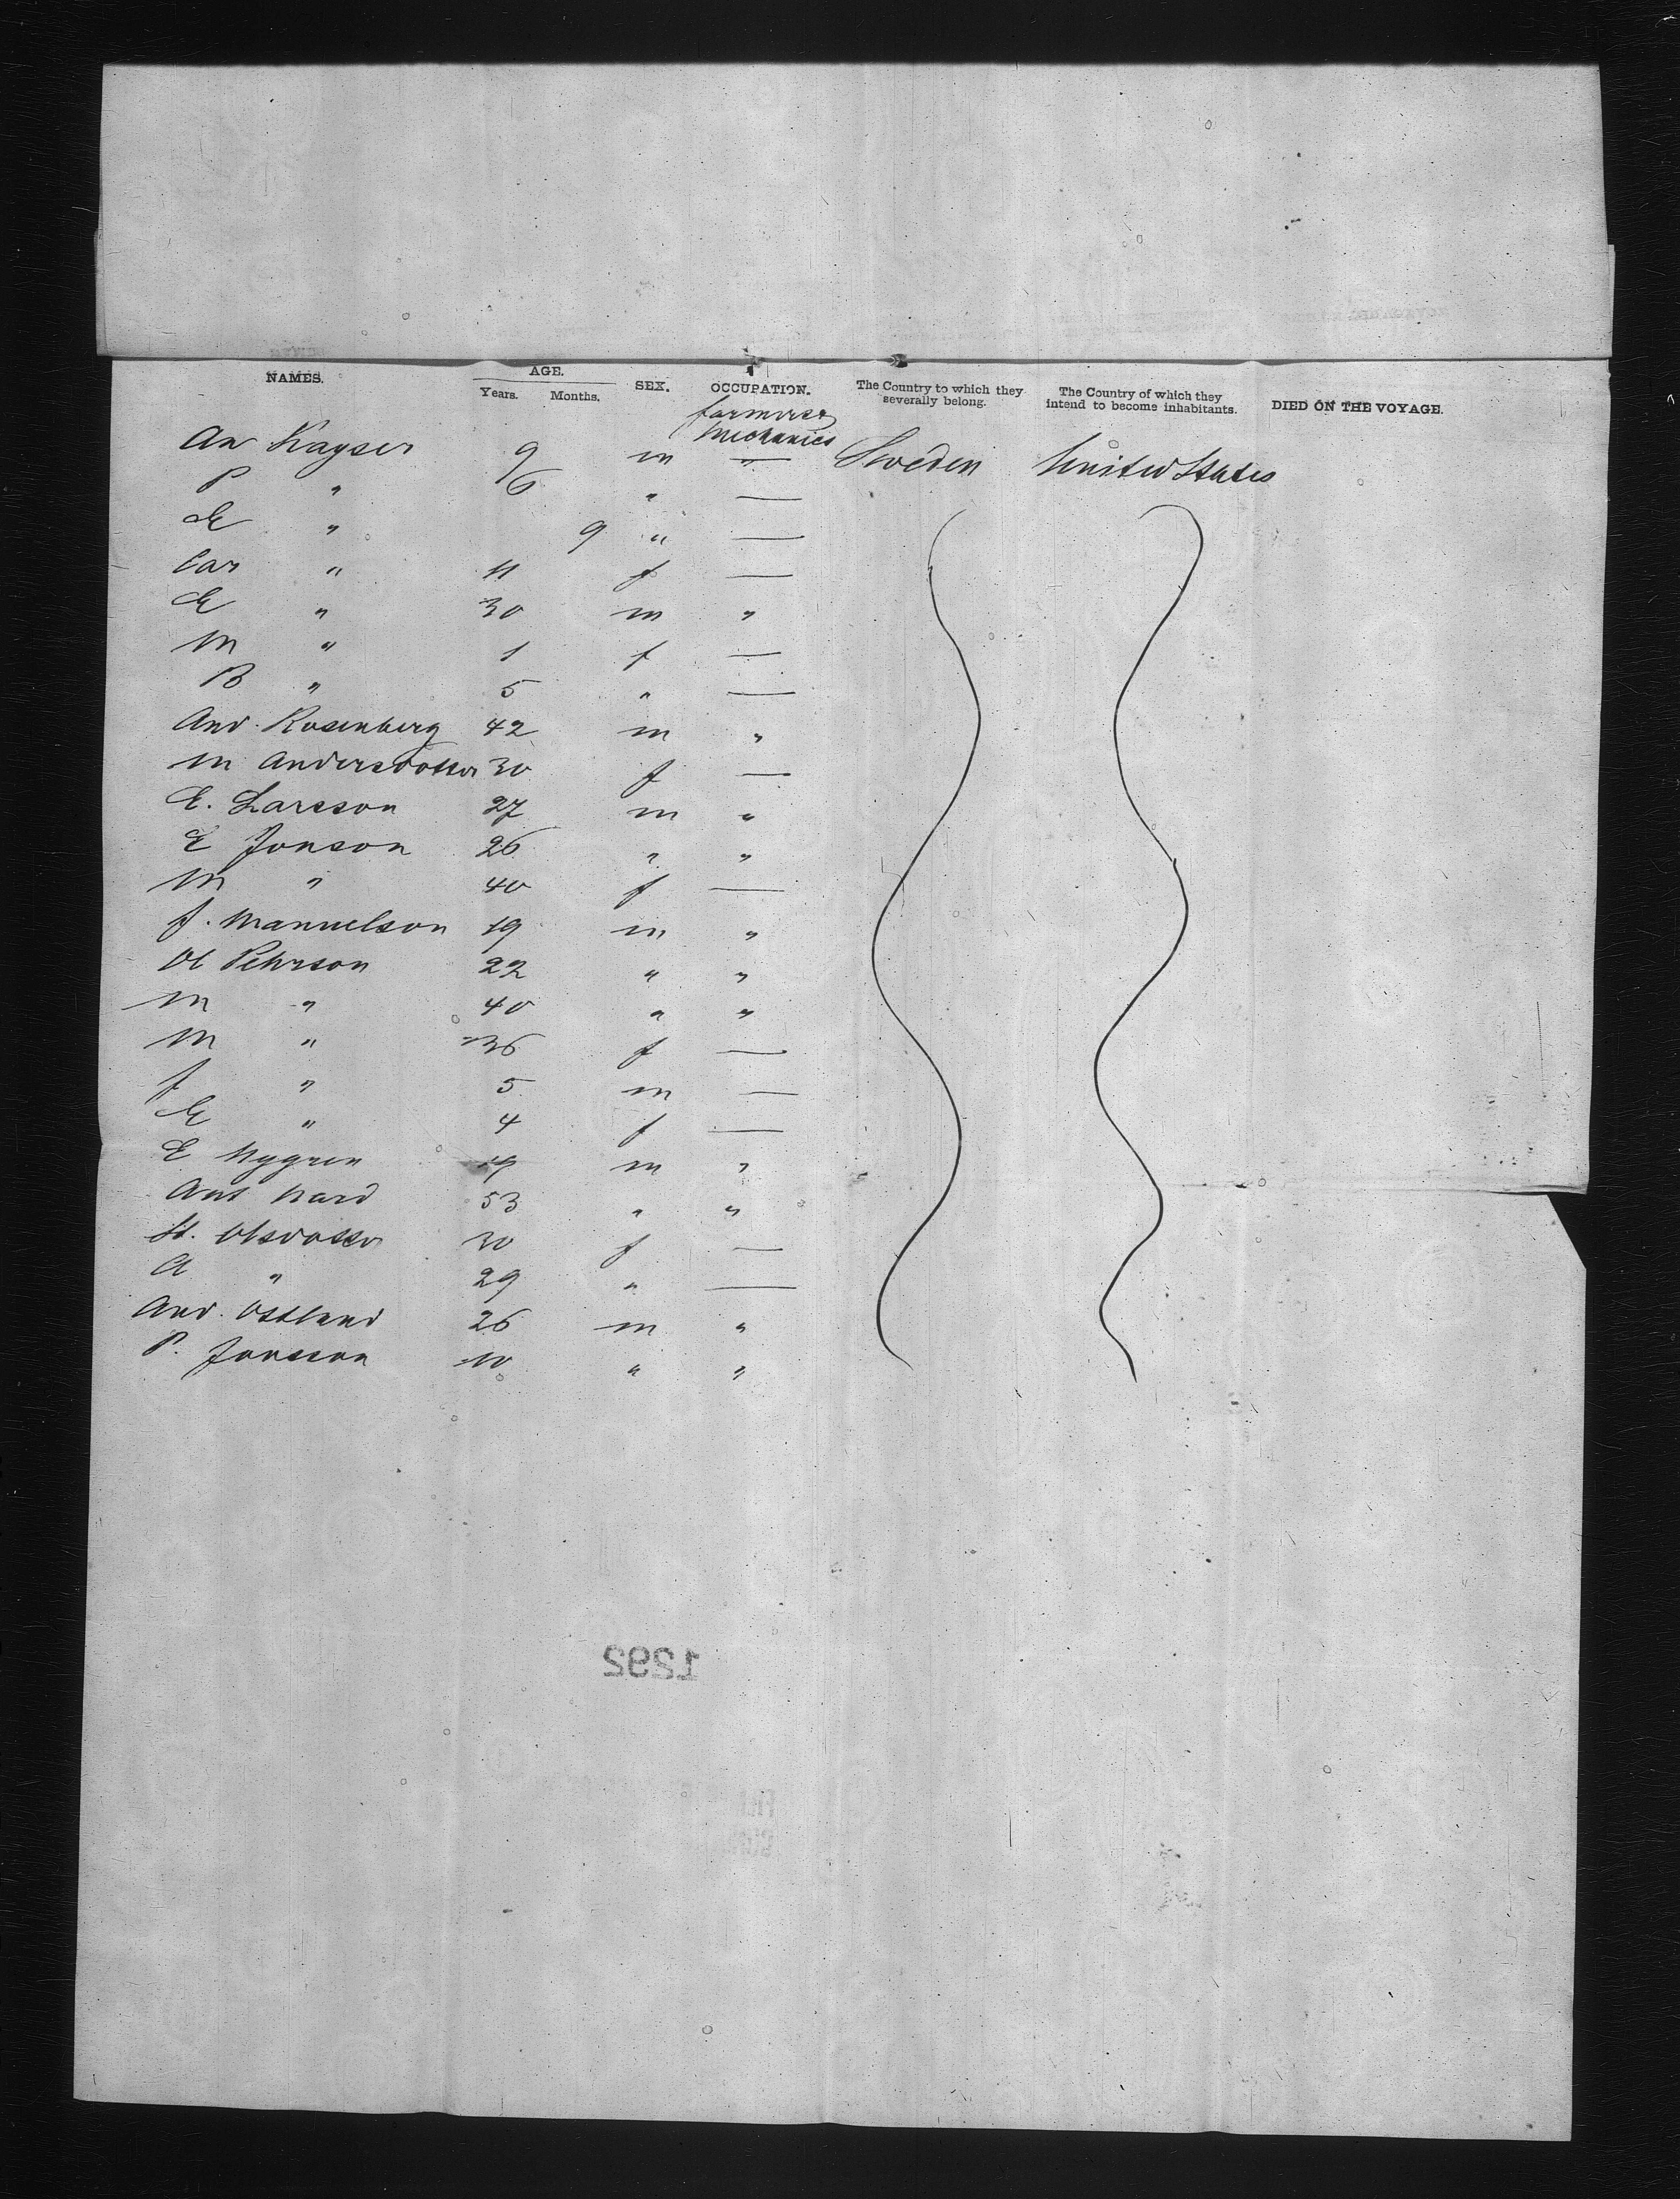 NAMES. AGE. SEX. OCCUPATION. The Country to which they severally belong. The Country of which they intend to become inhabitants. DIED ON THE VOYAGE.
Years. Months.
farmers &
mechanics
An Kayser 9 m " Sweden United States
P " 6 " —
E " 9 " —
Car " 11 f —
E " 30 m "
M " 1 f —
B " 5 " —
And. Rosenberg 42 m "
M Andersdotter 30 f —
E. Larsson 27 m "
E Jonson 26 " "
M " 40 f —
J. Manuelson 19 m "
Ol Pehrson 22 " "
M " 40 " "
M " 36 f —
J " 5 m —
E " 4 f —
E Nygren 19 m "
Aut Nard 53 " "
St. Olsdotter 30 f —
A " 29 " —
And. Ostlund 26 m "
P. Jonsson 10 " "
1292